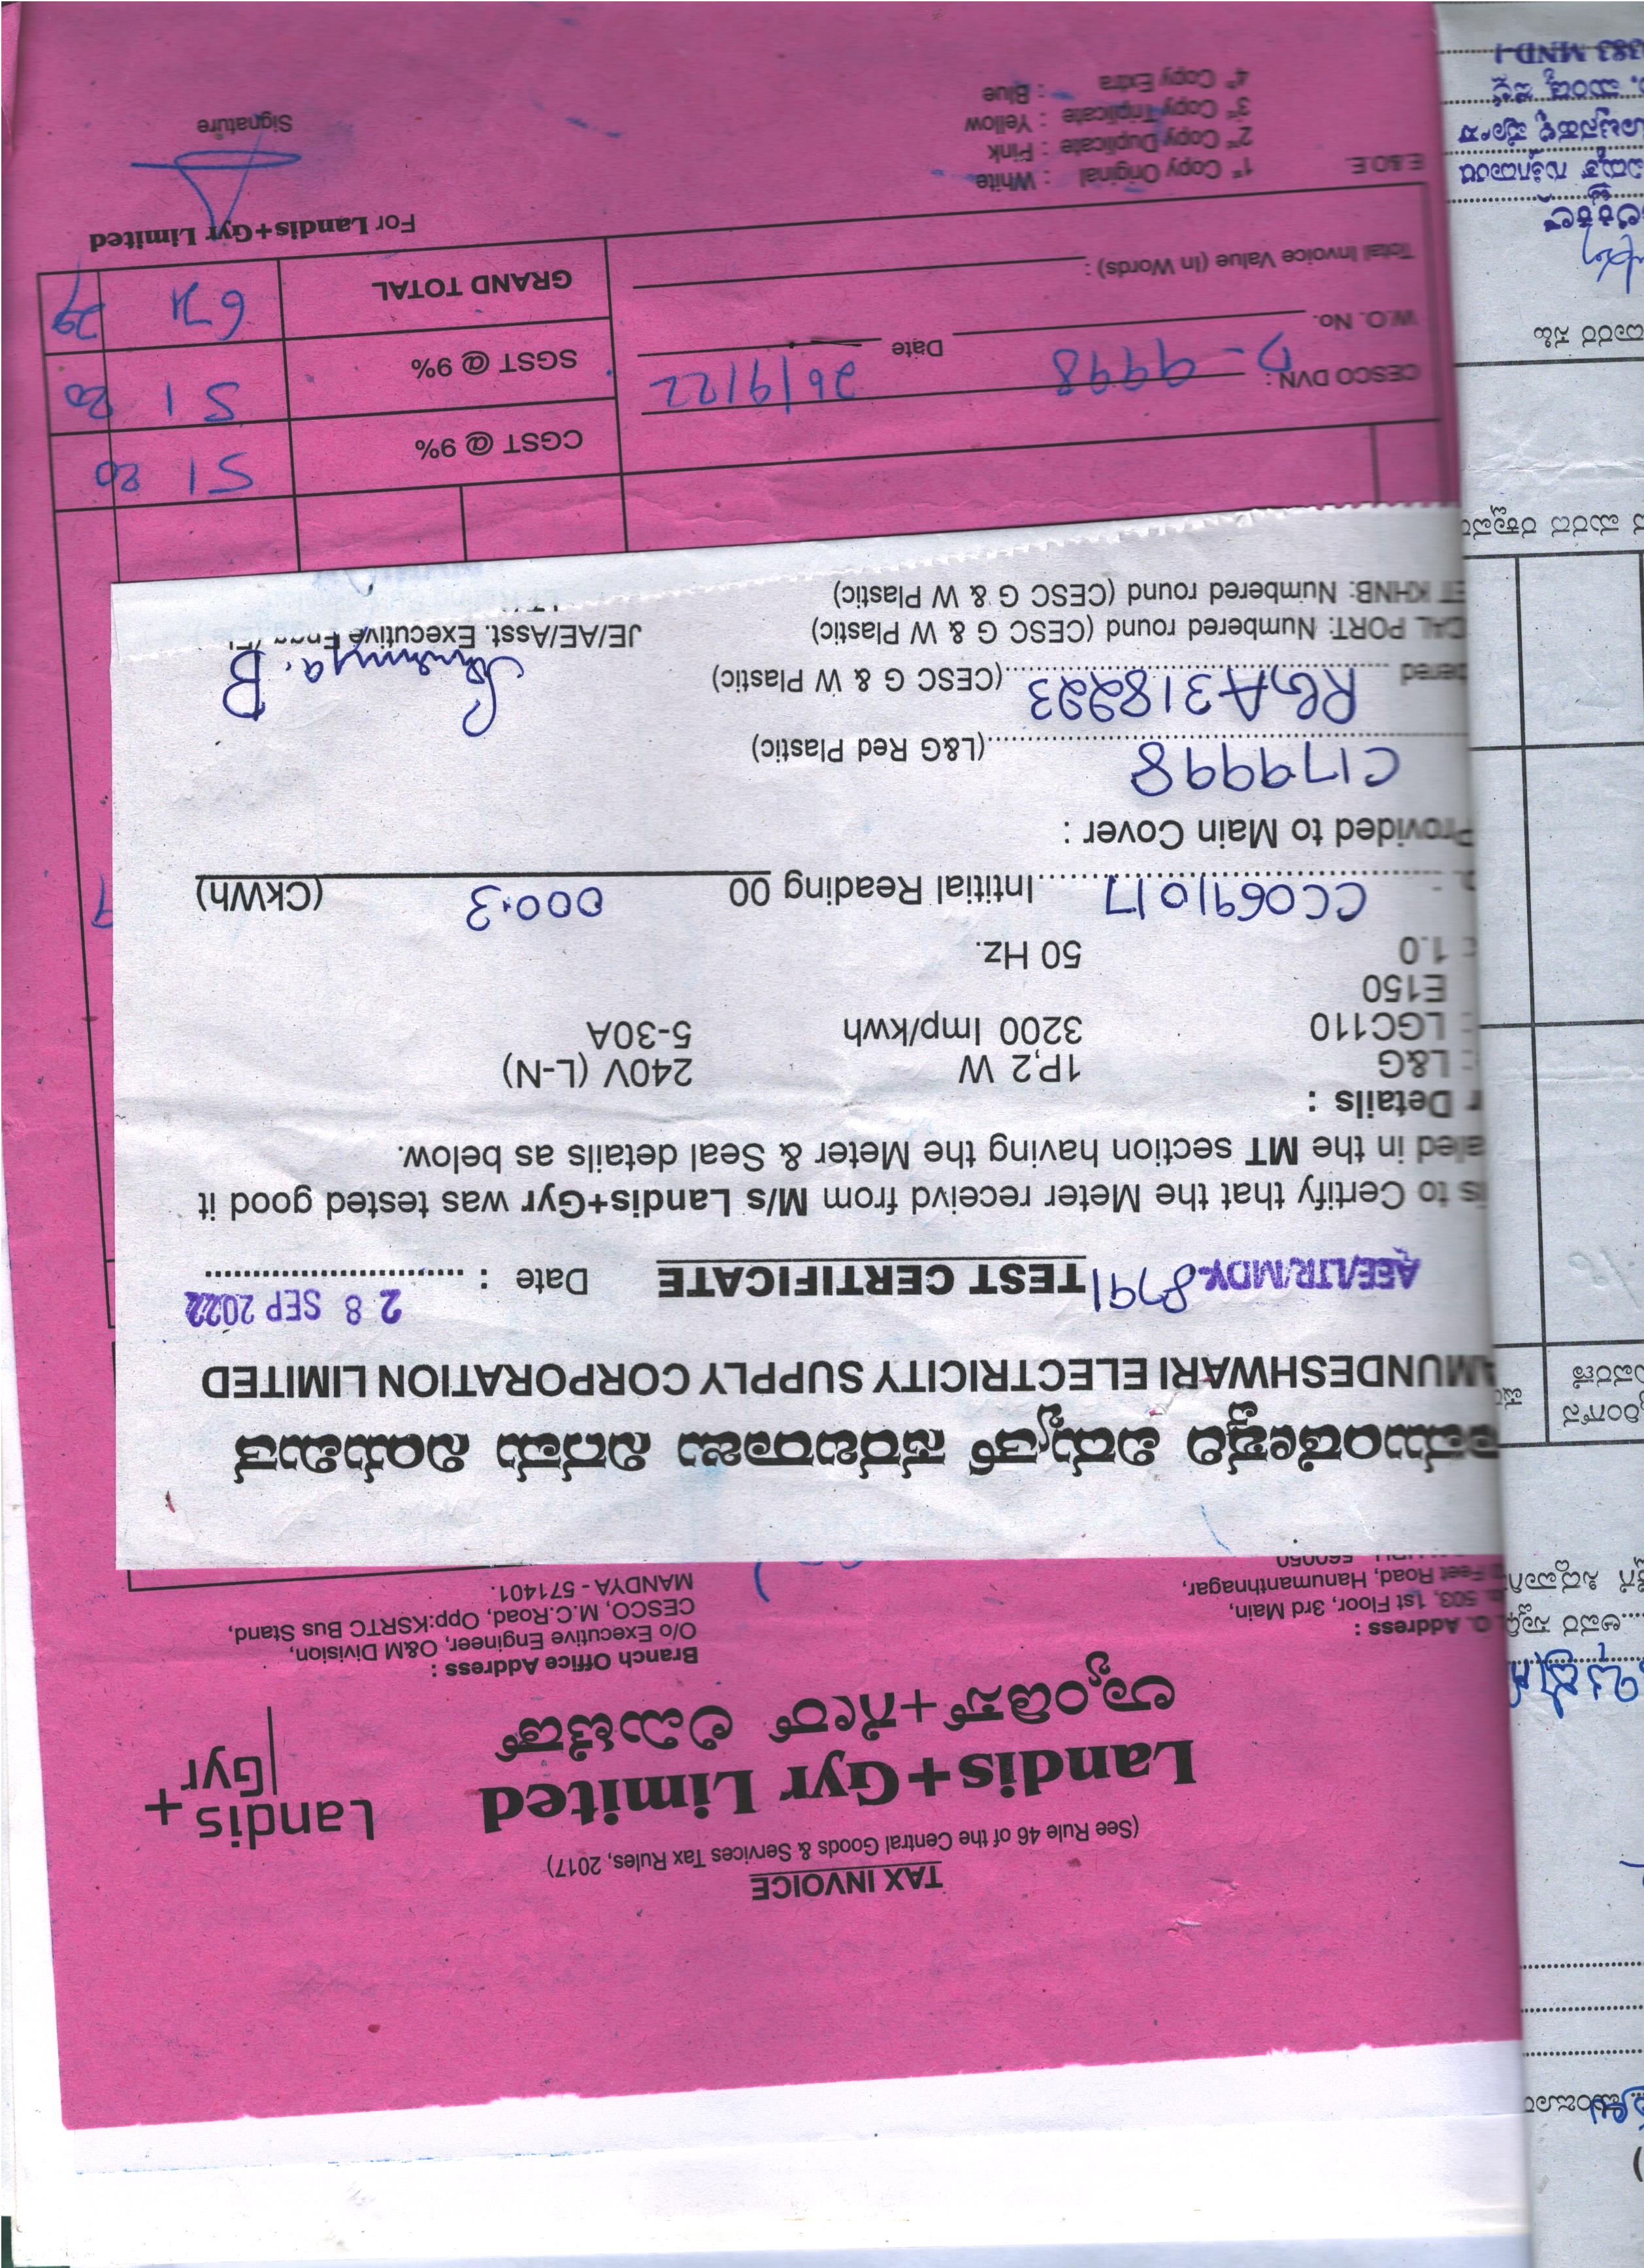 TAX INVOICE
(See Rule 46 of the Central Goods & Services Tax Rules, 2017)
Landis+Gyr Limited
ಲ್ಯಾಂಡಿಸ್+ಗೇರ್ ಲಿಮಿಟೆಡ್
Landis+
Gyr
O. Address :
503, 1st Floor, 3rd Main,
Feet Road, Hanumanthnagar,
560050
Branch Office Address :
O/o Executive Engineer, O&M Division,
CESCO, M.C.Road, Opp:KSRTC Bus Stand,
MANDYA - 571401.
ವಿದ್ಯುತ್ ಸರಬರಾಜು ನಿಗಮ ನಿಯಮಿತ
AMUNDESHWARI ELECTRICITY SUPPLY CORPORATION LIMITED
AEE/LTR/MDY- 8791 TEST CERTIFICATE Date : 28 SEP 2022
is to Certify that the Meter receivd from M/s Landis+Gyr was tested good it
aled in the MT section having the Meter & Seal details as below.
r Details :
: L&G 1P,2 W 240V (L-N)
: LGC110 3200 Imp/kwh 5-30A
E150
: 1.0 50 Hz.
CC0691017 Intitial Reading 00 000.3 (CkWh)
Provided to Main Cover :
C179998 (L&G Red Plastic)
bered RGA318223 (CESC G & W Plastic)
CAL PORT: Numbered round (CESC G & W Plastic)
ET KHNB: Numbered round (CESC G & W Plastic)
JE/AE/Asst. Executive Engg
CGST @ 9% 51 20
CESCO DVN : D-9998 26/9/22
SGST @ 9% 51 20
W.O. No. Date
GRAND TOTAL 671 29
Total Invoice Value (In Words) :
For Landis+Gyr Limited
E.&O.E.
1st Copy Original : White
2nd Copy Duplicate : Pink
3rd Copy Triplicate : Yellow
4th Copy Extra : Blue
Signature
383 MND-1